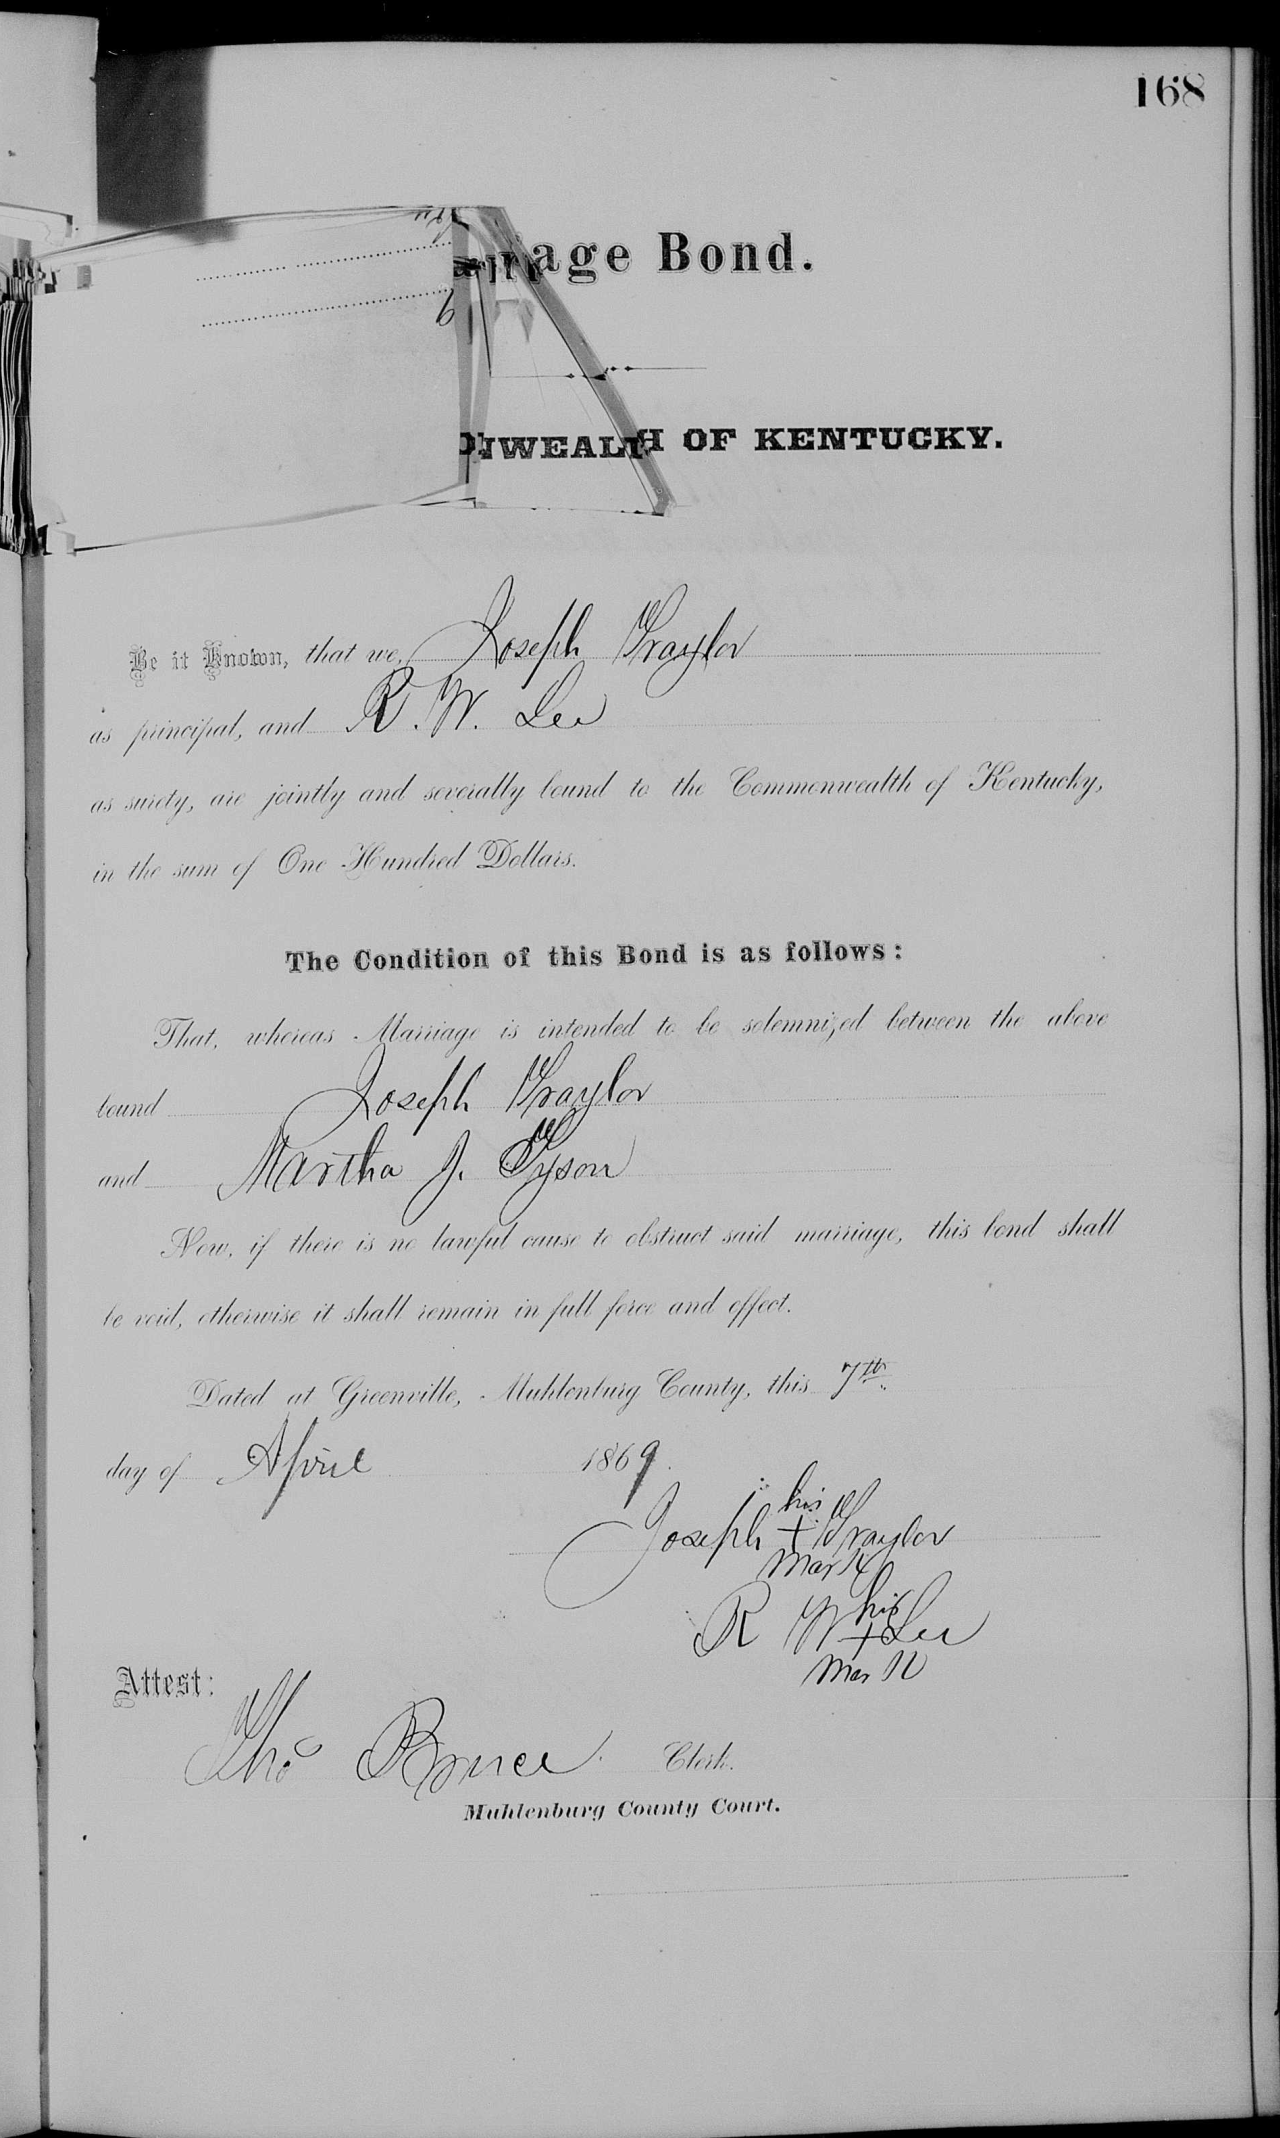 168
riage Bond.
NWEALTH OF KENTUCKY.
Be it Known, that we, Joseph Traylor
as principal, and R. W. Lee
as surety, are jointly and severally bound to the Commonwealth of Kentucky,
in the sum of One Hundred Dollars.
The Condition of this Bond is as follows:
That, whereas Marriage is intended to be solemnized between the above
bound Joseph Traylor
and Martha J. Tyson
Now, if there is no lawful cause to obstruct said marriage, this bond shall
be void, otherwise it shall remain in full force and effect.
Dated at Greenville, Muhlenburg County, this 7th
day of April 1869.
his
Joseph + Traylor
mark
his
R W + Lee
mark
Attest:
Tho Bruce Clerk.
Muhlenburg County Court.